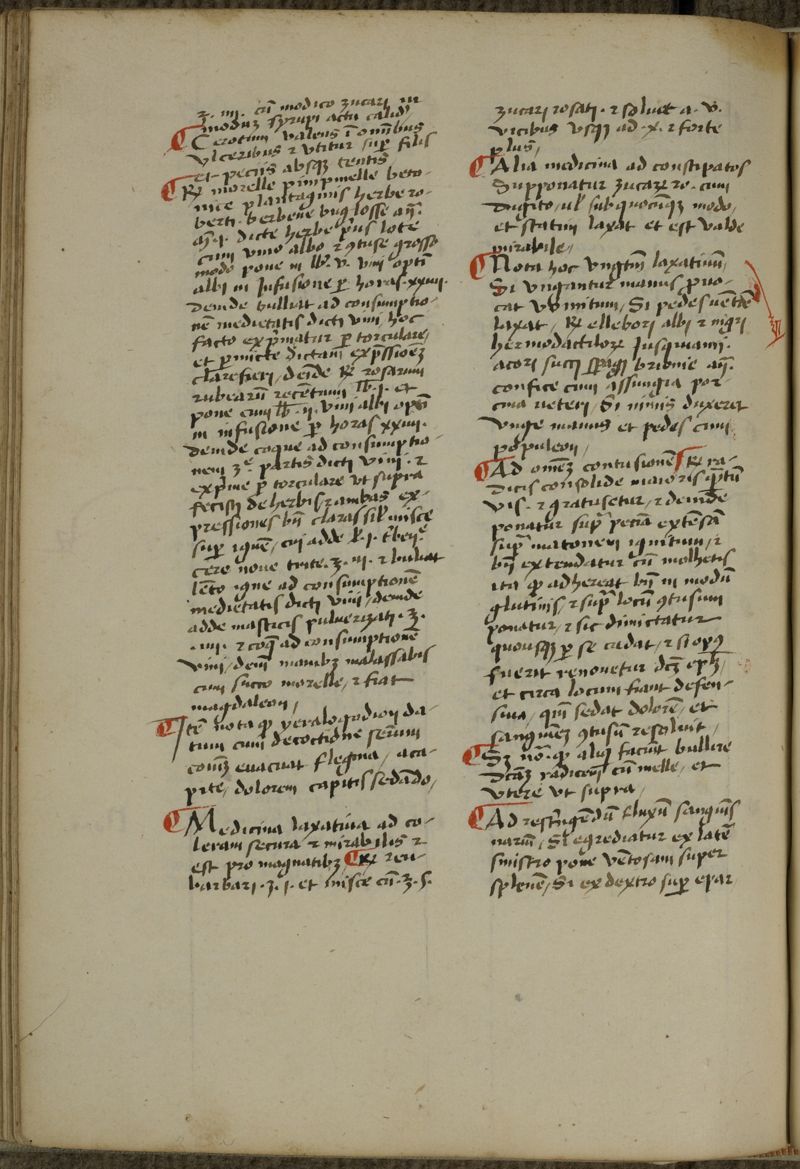 ʒ. iiij. cū modico zucarj in
modūʒ syrupi actu calidi
Cerotum valens ī om̄ibus
vlceribus ⁊ vtitur suꝑ filis
et peciis absqʒ tentis
℞ morelle pimpinelle beto-
nice plantaginis herbe ro-
berti. berbene buglosse an̄.
m̄. j. dicte herbe p̄us lote
cum vino albo ⁊ ꝯtuse grosso
modo pone in lb. v. vini optī
albi in Jnfusione ꝑ horas. xxiiij.
deinde bulliat ad consumptio-
nē medietatis dicti vini hoc
facto exp̄matur ꝑ torculare,
et ꝑmicte dictam exp̄ssioēʒ
clarefieri, deīde ℞ rosarum
rubearū recētum lb. j. et
pone cum lb. ij. vini albi optī
in infusione ꝑ horas xxiiij.
deinde coque ad consumptio-
nem 3ᵉ partis dicti vini. ⁊
exp̄me ꝑ torculare vt supra
fecisti de herbis, ⁊ ambas ex-
pressiones bn̄ claras sil̄ misce
suꝑ ignē, cui adde
cere noue ʒ. iij. ⁊ bulliat
lēto igne ad consumptionē
medietatis dicti vini, deinde
adde masticis puluerizati. ʒ.
.iiij. ⁊ coqͣ ad consumptionē
vini, dein manibʒ malassabis
cum succo morelle, ⁊ fiat
magdaleon,
Jtē nota ꝙ yeralogodion da-
tum cum decoctiōne senum
comūʒ euacuat flegma, a ca-
pite, dolorem capitis sedādo,
Medicina laxatiua ad co-
leram secura ⁊ mirabilis ⁊
est pro magnatibʒ ℞ reu-
barbarj. ʒ. j. et misce cū. ʒ. s.
zucarj rosati. ⁊ soluet a. v.
vicibus vsqʒ ad. x. ⁊ forte
plus,
Alia medicina ad constipatos
Supponatur zucaꝝ ro. cum
digito, ul̓ sub quocūqʒ modo,
et statim laxat et est valde
mirabile,
Nota hoc vngtm̄ laxatiuum,
Si vngantur manus ꝓuo-
cat vomitum, Si pedes uētrē
laxat, ℞ ellebori albi ⁊ nigrj
hermodactiloꝝ Jusquiami.
acori succi brionie an̄.
confice cum assungia por-
cina veteri, Si nimis duxerit
vnge manus et pedes cum
populeon,
Ad omēʒ contusionē ℞ ra-
dicis consolide maioris q̄ntū
vis. ⁊ gratusetur, ⁊ deinde
ponatur sup̄ peciā extēsā
sup̄ matonem ignitum, ⁊
bn̄ extendatur cū molhetis
ita ꝙ adhereat bn̄ in modū
glutinis, ⁊ sup̄ locū ꝯtusum
ponatur, ⁊ sic dimictatur
quousqʒ ꝑ se cadat, ⁊ si op̄
fuerit renouetur dc̄ʒ
et circa locum fiant defen-
siua, qm̄ sedat dolorē, et
sanguinēʒ ꝯtusū resoluit,
Sʒ nō. ꝙ aliqͥ faciūt bullire
dc̄āʒ radicem cū melle, et
vtere vt supra,
Ad restringēdū fluxū sanguīs
narium, Si egrediatur ex latē
sinistro pone vētosam super
splenē, Si ex dextro suꝑ epar